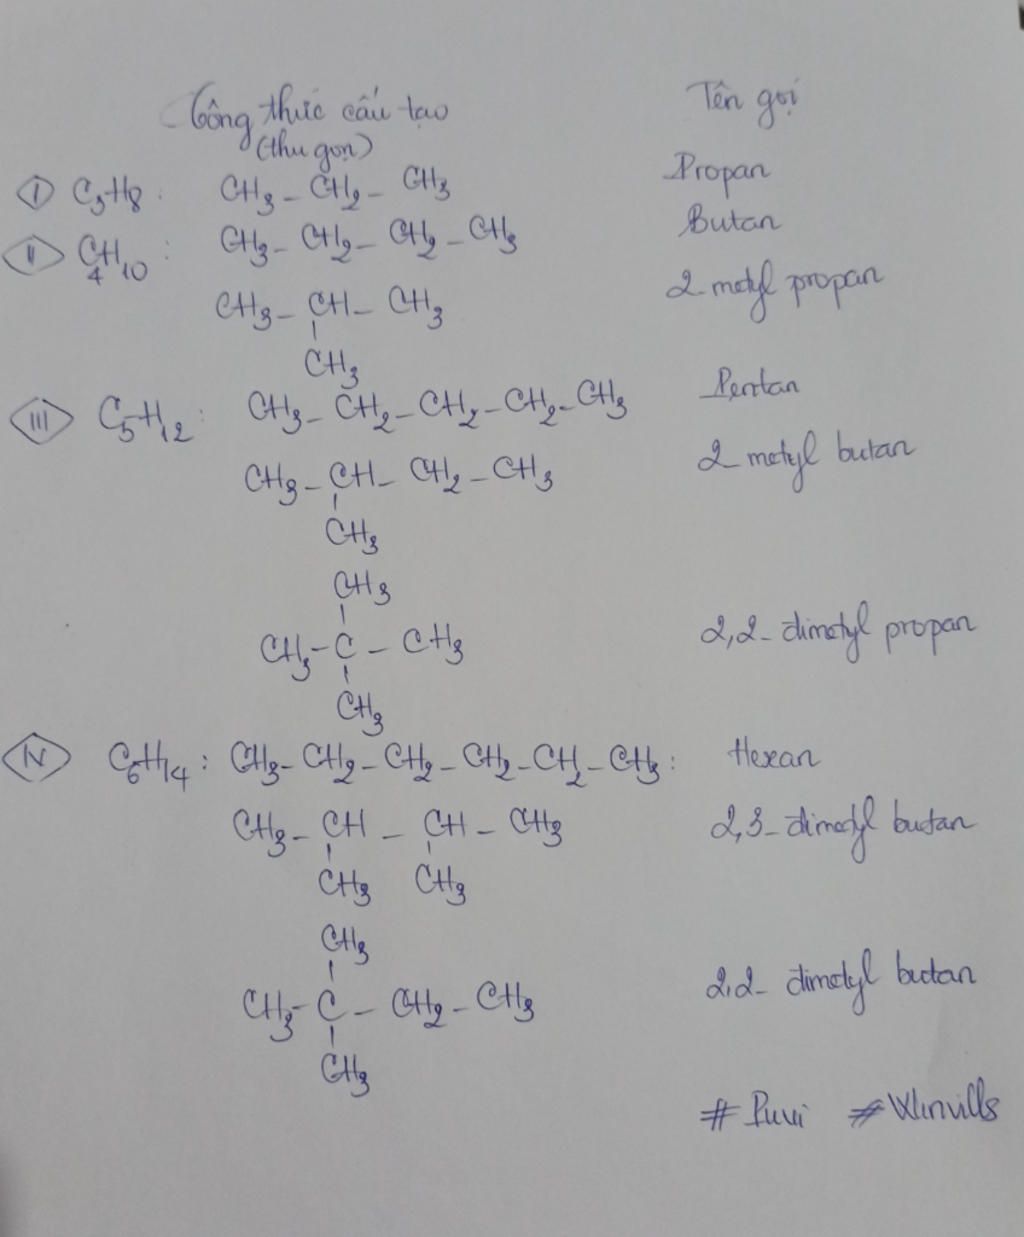 Công thức cấu tạo Tên gọi
(thu gọn)
I C3H8: CH3 - CH2 - CH3 Propan
II C4H10: CH3 - CH2 - CH2 - CH3 Butan
CH3 - CH - CH3 2 metyl propan
CH3
III C5H12: CH3 - CH2 - CH2 - CH2 - CH3 Pentan
CH3 - CH - CH2 - CH3 2 metyl butan
CH3
CH3
CH3 - C - CH3 2,2- dimetyl propan
CH3
IV C6H14: CH3 - CH2 - CH2 - CH2 - CH2 - CH3: Hexan
CH3 - CH - CH - CH3 2,3- dimetyl butan
CH3 CH3
CH3
CH3 - C - CH2 - CH3 2,2- dimetyl butan
CH3
#